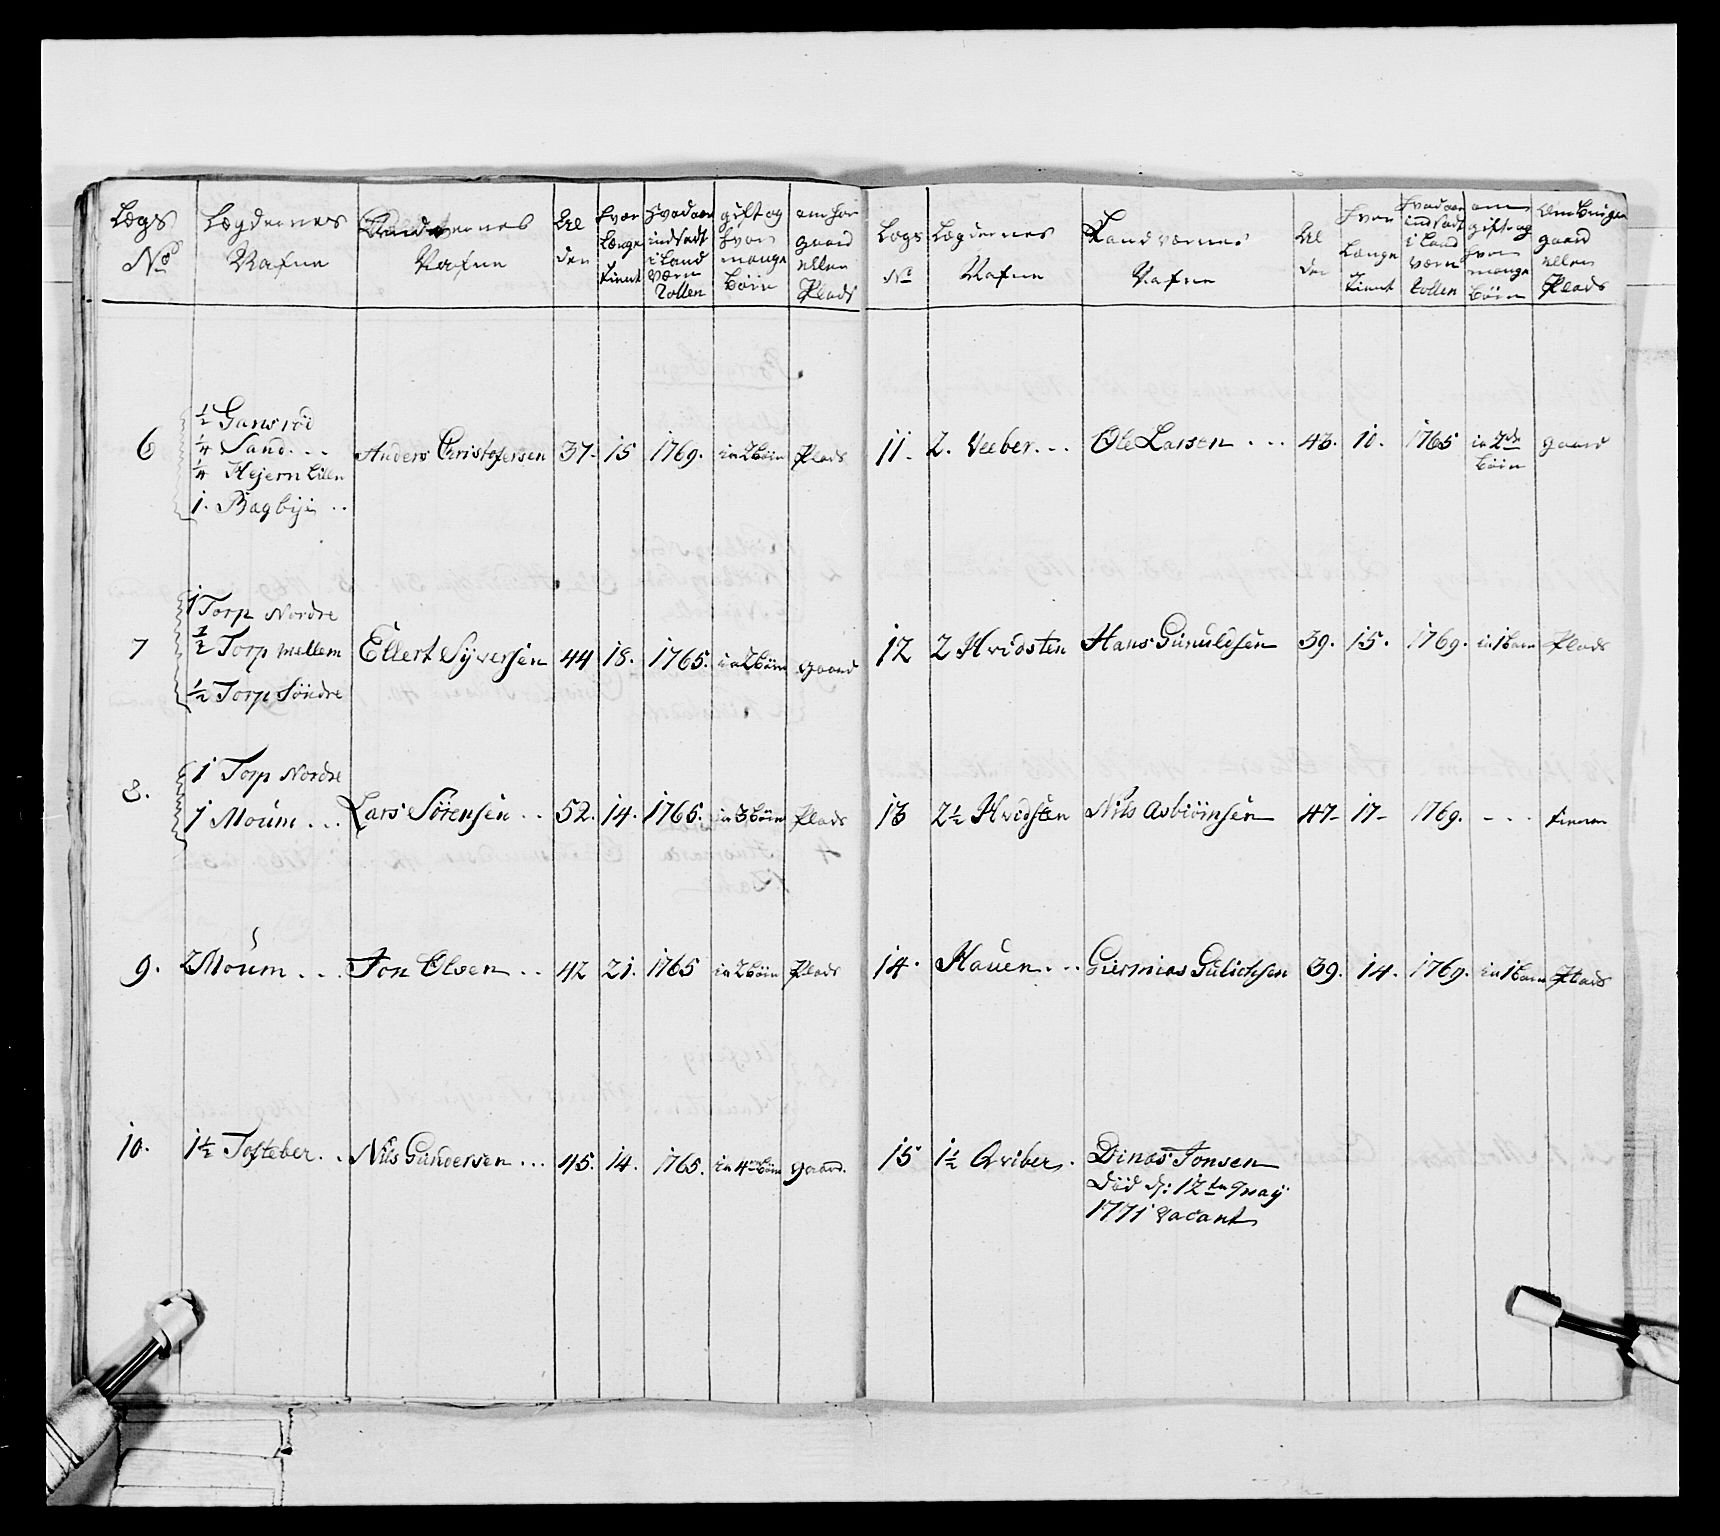 Lægs
No
Lægdernes
Nafne
Nafne
Al
der
hvor
Længe
tient
hvad aar
indsadt
i Land
værn
Rollen
gift og
hvor
mange
Börn
om har
gaard
ellen
Plads
6
½ Gansröd
¼ Sand...
¼ Kejern Lille
1. Bagbÿe ..
Anders Christofersen 37. 15 1769. ja 2 Börn Plads
7
1 Torp Nordre
½ Torp Mellem
½ Torp Söndre
Ellert Syversen 44 18. 1765. ja 2 Börn gaard
8.
1 Torp Nordre
1 Moum...
Lars Sörensen .. 52. 14. 1765. ja 3 Börn Plads
9. 2 Moum... Jon Olsen .. 42 21. 1765 ja 2 Börn Plads
10. 1½ Tofteber.. Nils Gundersen... 45. 14. 1765. ja 4 Börn gaard.
Lægs
No
Lægdernes
Nafne
Landværnes
Nafne
Al
der
hvor
Længe
tient
hvad aar
indsadt
i Land
værn
Rollen
om
gift og
hvor
mange
Börn
om bruger
gaard
ellen
Plads
11. 2. Veeber... Ole Larsen... 43. 10. 1765 ja 2de
Börn
gaard
12 2 Hvidsten Hans Gunuldsen 39. 15. 1769. ja 1 Barn Plads
13 2½ Hvidsten Nils Asbiörnsen 47- 17- 1769. - . . tienner
14. Hauen... Giermias Gulichsen 39. 14. 1769. ja 1 Barn Plads
15 1½ Qviber. Dines Jonsen
död d: 12te Maÿ
1771 vacant